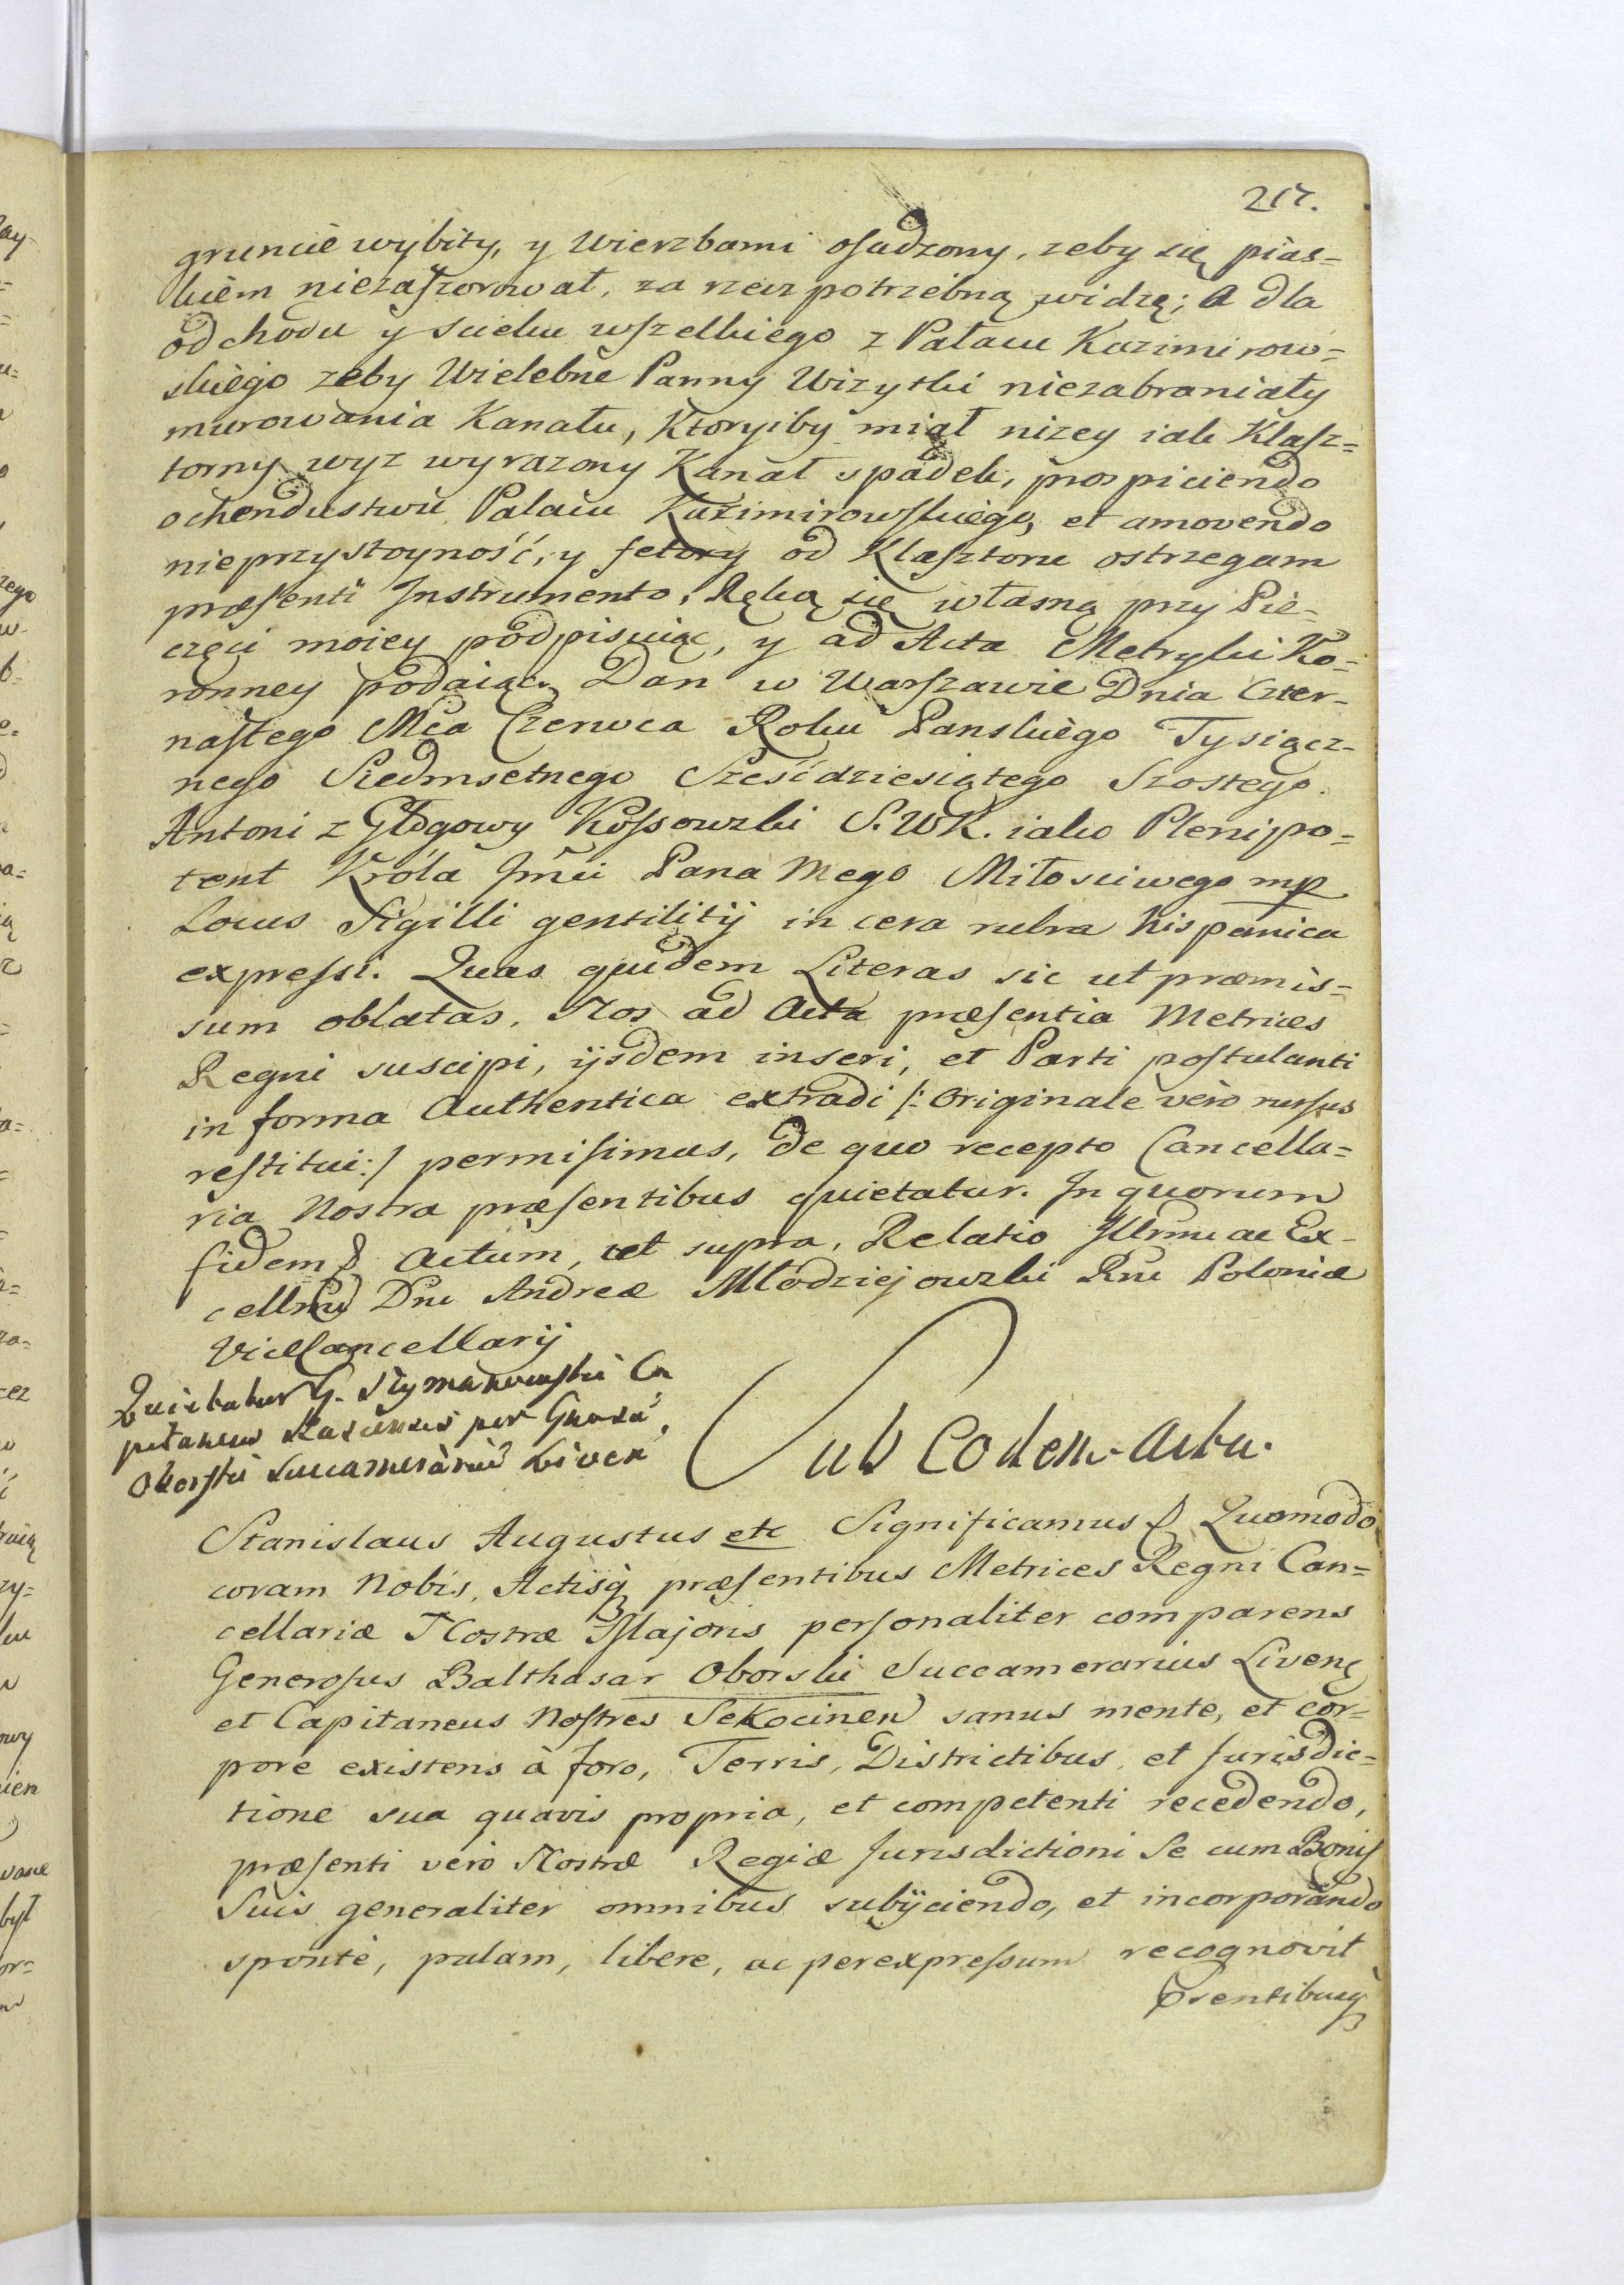 217.
gruncie wybity, y Wierzbami osadzony, zeby się pias=
kiem niezaszorował, za rzecz potrzebną widzę; A dla
odchodu y scieku wszelkiego z Pałacu Kazimirow=
skiego zeby Wielebne Panny Wizytki niezabraniały
murowania Kanału, Ktoryiby miał nizey iak Klasz=
torny wyz wyrazony Kanał spadek, prospiciendo
ochendustwu Palacu Kazimirowskiego, et amovendo
nieprzystoyność, y fetory od Klasztoru ostrzegam
præsenti Instrumento, Ręką się własną przy Pie=
częci moiey podpisuiąc, y ad Acta Metryki Ko=
ronney podaiąc. Dan w Warszawie Dnia Czter=
nastego Mca Czerwca Roku Panskiego Tysiącz=
nego Siedmsetnego Sześćdziesiątego Szostego.
Antoni z Głogowy Kossowski S.WK. iako Plenipo=
tent Króla Jmci Pana Mego Miłosciwego mp
Locus Sigilli gentilitij in cera rubra hispanica
expressi. Quas quidem Literas sic ut præmis=
sum oblatas, Nos ad Acta præsentia Metrices
Regni suscipi, ijsdem inseri, et Parti postulanti
in forma Authentica extradi /: Originale vero rursus
restitui :/ permisimus, de quo recepto Cancella=
ria Nostra præsentibus quietatur. In quorum
fidem Actum, ut supra, Relatio Illrmi ac Ex=
cellmi Dni Andreæ Młodziejowski Rni Poloniæ
ViceCancellarij
Quietatur G. Szymanowski Ca
pitaneus per Gnosu
Oborski Succamerariu Livea
Sub Eodem Actu.
Stanislaus Augustus etc Significamus Quomodo
coram Nobis, Actisq præsentibus Metrices Regni Can=
cellariæ Nostræ Majoris personaliter comparens
Generosus Balthasar Oborski Succamerarius Liven
et Capitaneus Nostres Sekocinen sanus mente, et cor=
pore existens à foro, Terris, Districtibus, et Jurisdic=
tione sua quavis propria, et competenti recedendo,
præsenti vero Nostræ Regiæ Jurisdictioni Se cum Bonis
Suis generaliter omnibus subijciendo, et incorporando
sponte, palam, libere, ac per expressum recognovit
Prentibusq